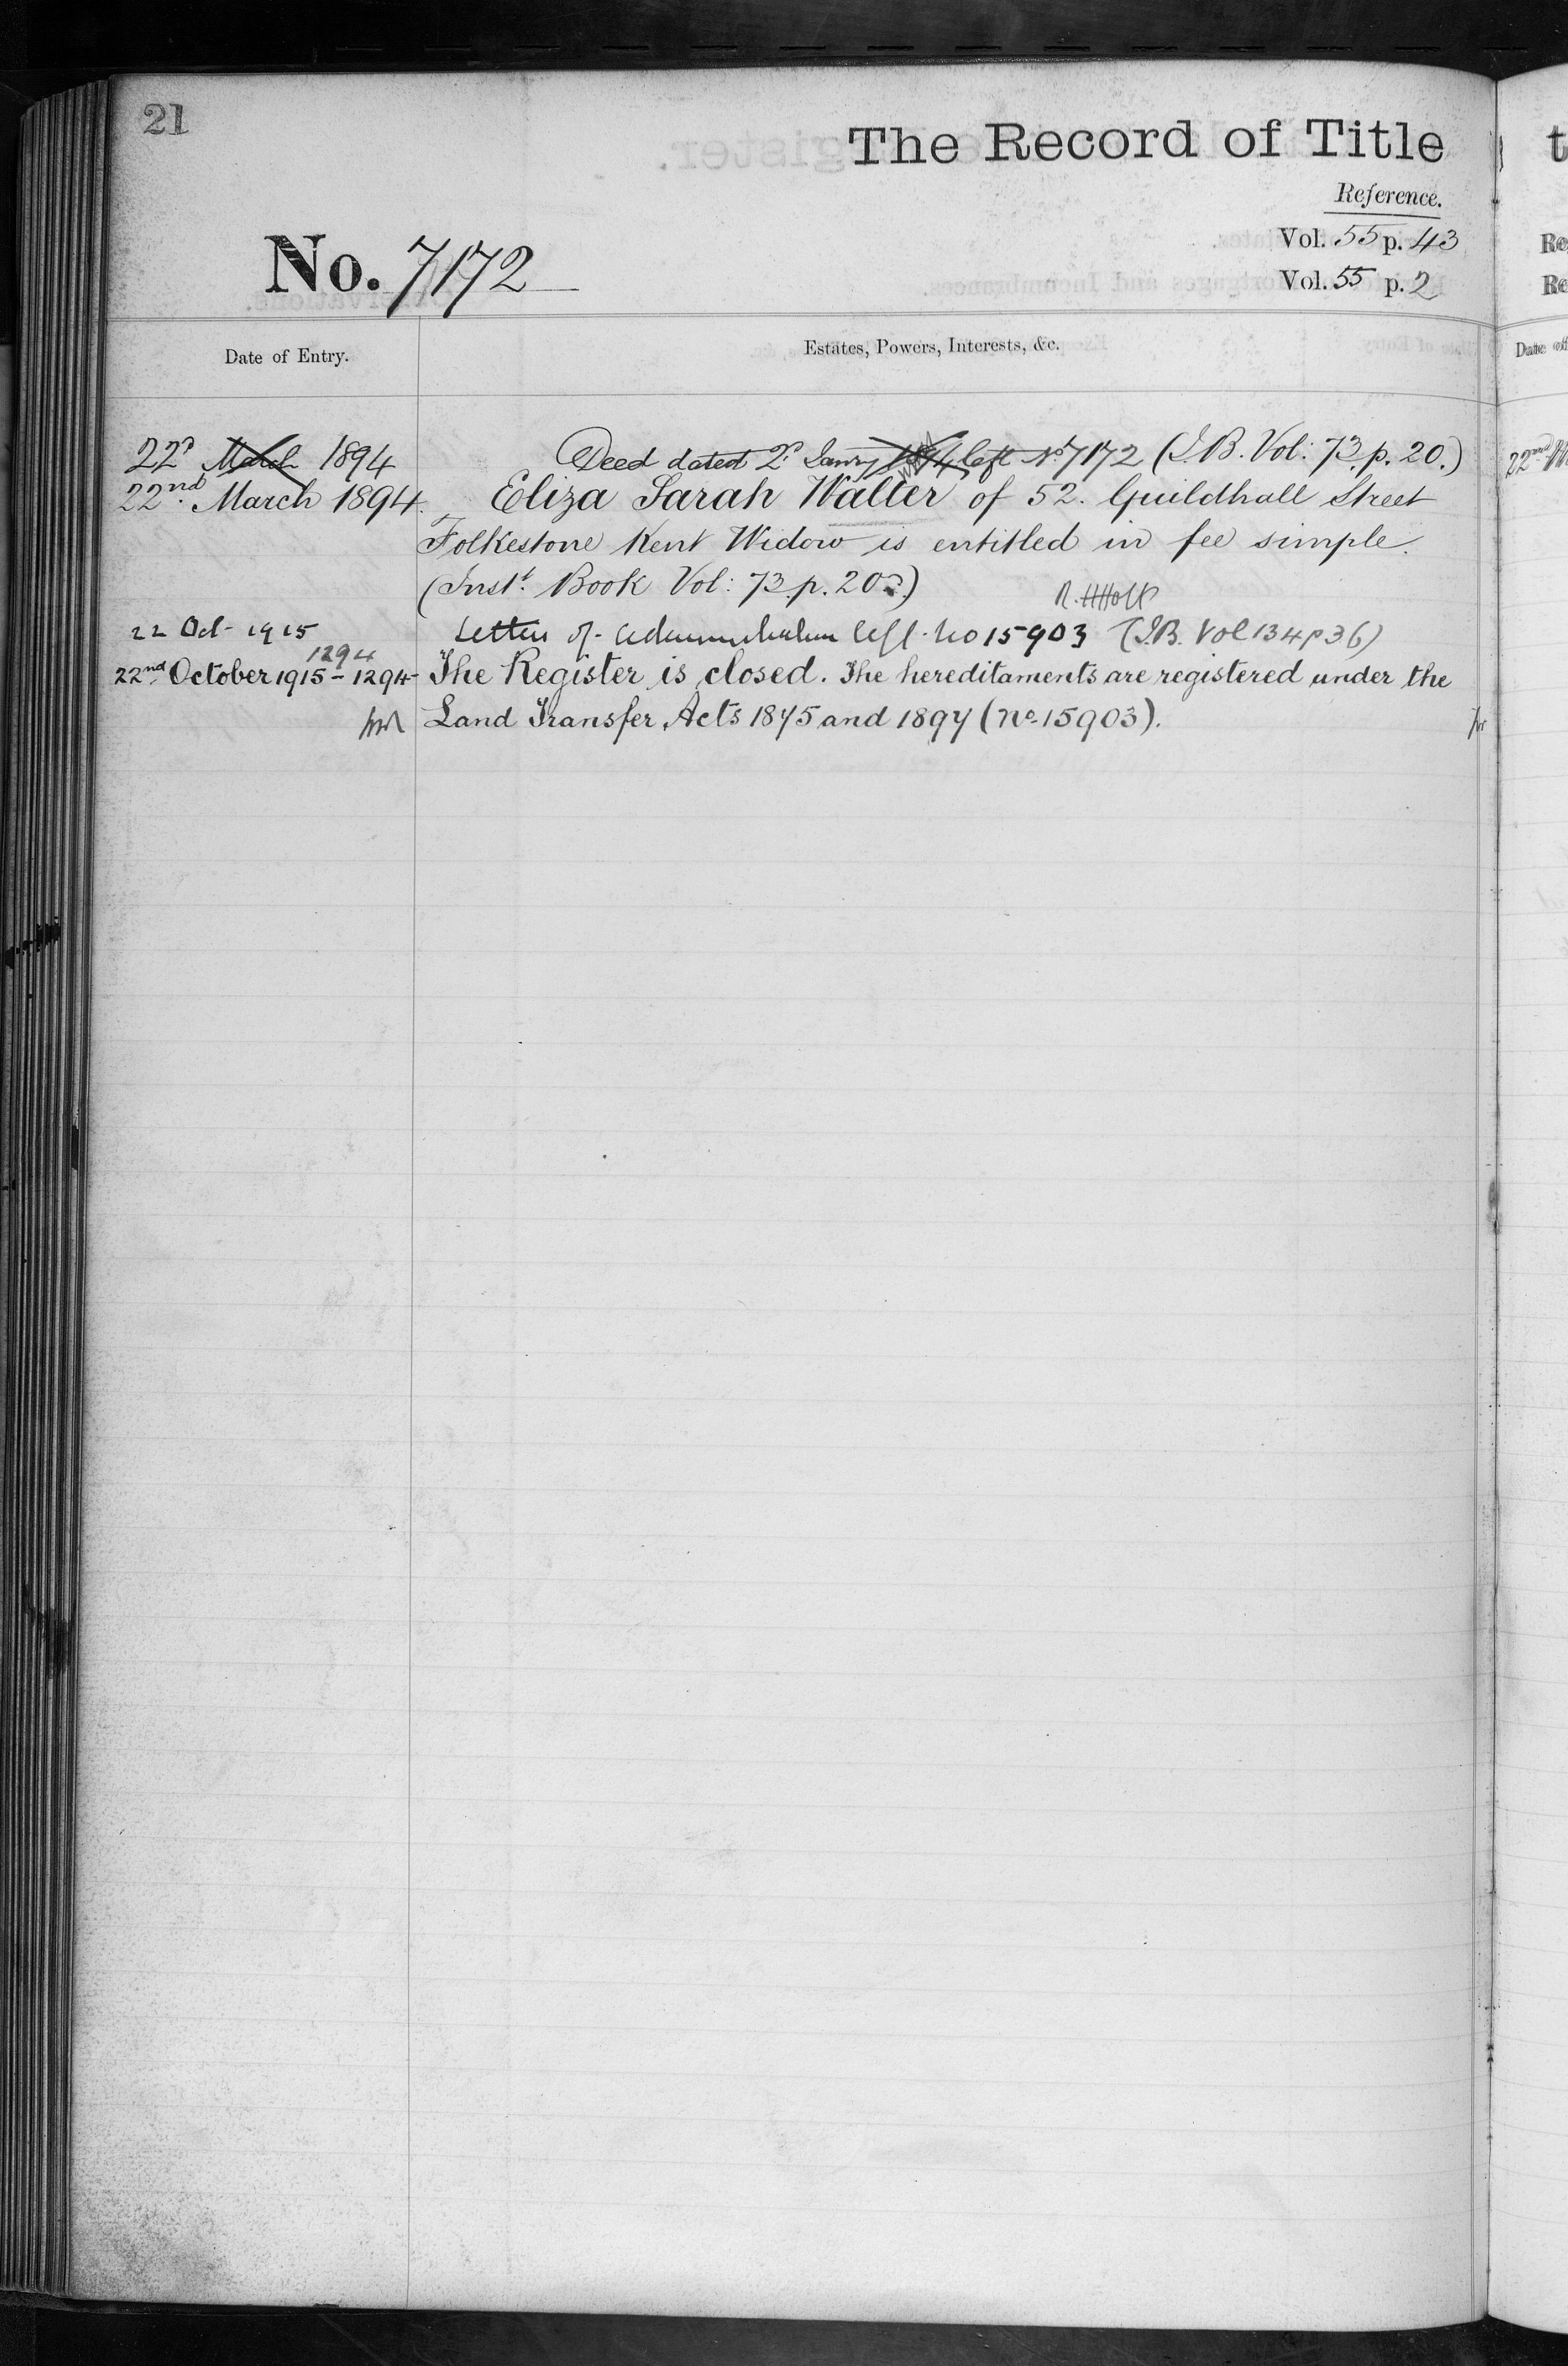 21
The Record of Title
Reference.
Vol. 55 p. 43
No. 7172
Vol. 55 p. 2
Date of Entry.
Estates, Powers, Interests, &c.
22d March 1894
Deed dated 2d Janry 1894 left No 7172 (I.B. Vol: 73. p. 20.)
22nd March 1894.
Eliza Sarah Waller of 52. Guildhall Street
Folkestone Kent Widow is entitled in fee simple.
(Inst. Book Vol: 73. p. 20.)
R. H Holt
22 Oct 1915
Letters of administration left No 15903 (I.B. Vol 134 p 36)
1294
22nd October 1915 - 1294
The Register is closed. The hereditaments are registered under the
Land Transfer Acts 1875 and 1897 (No. 15903).